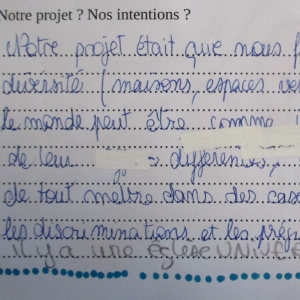 Notre projet ? Nos intentions ?
Notre projet était que nous f
diversité (maisons, espaces ver
le monde peut être comme
de leur différences,
de tout mettre dans des cas
les discriminations et les préju
il y a une église UNIVE